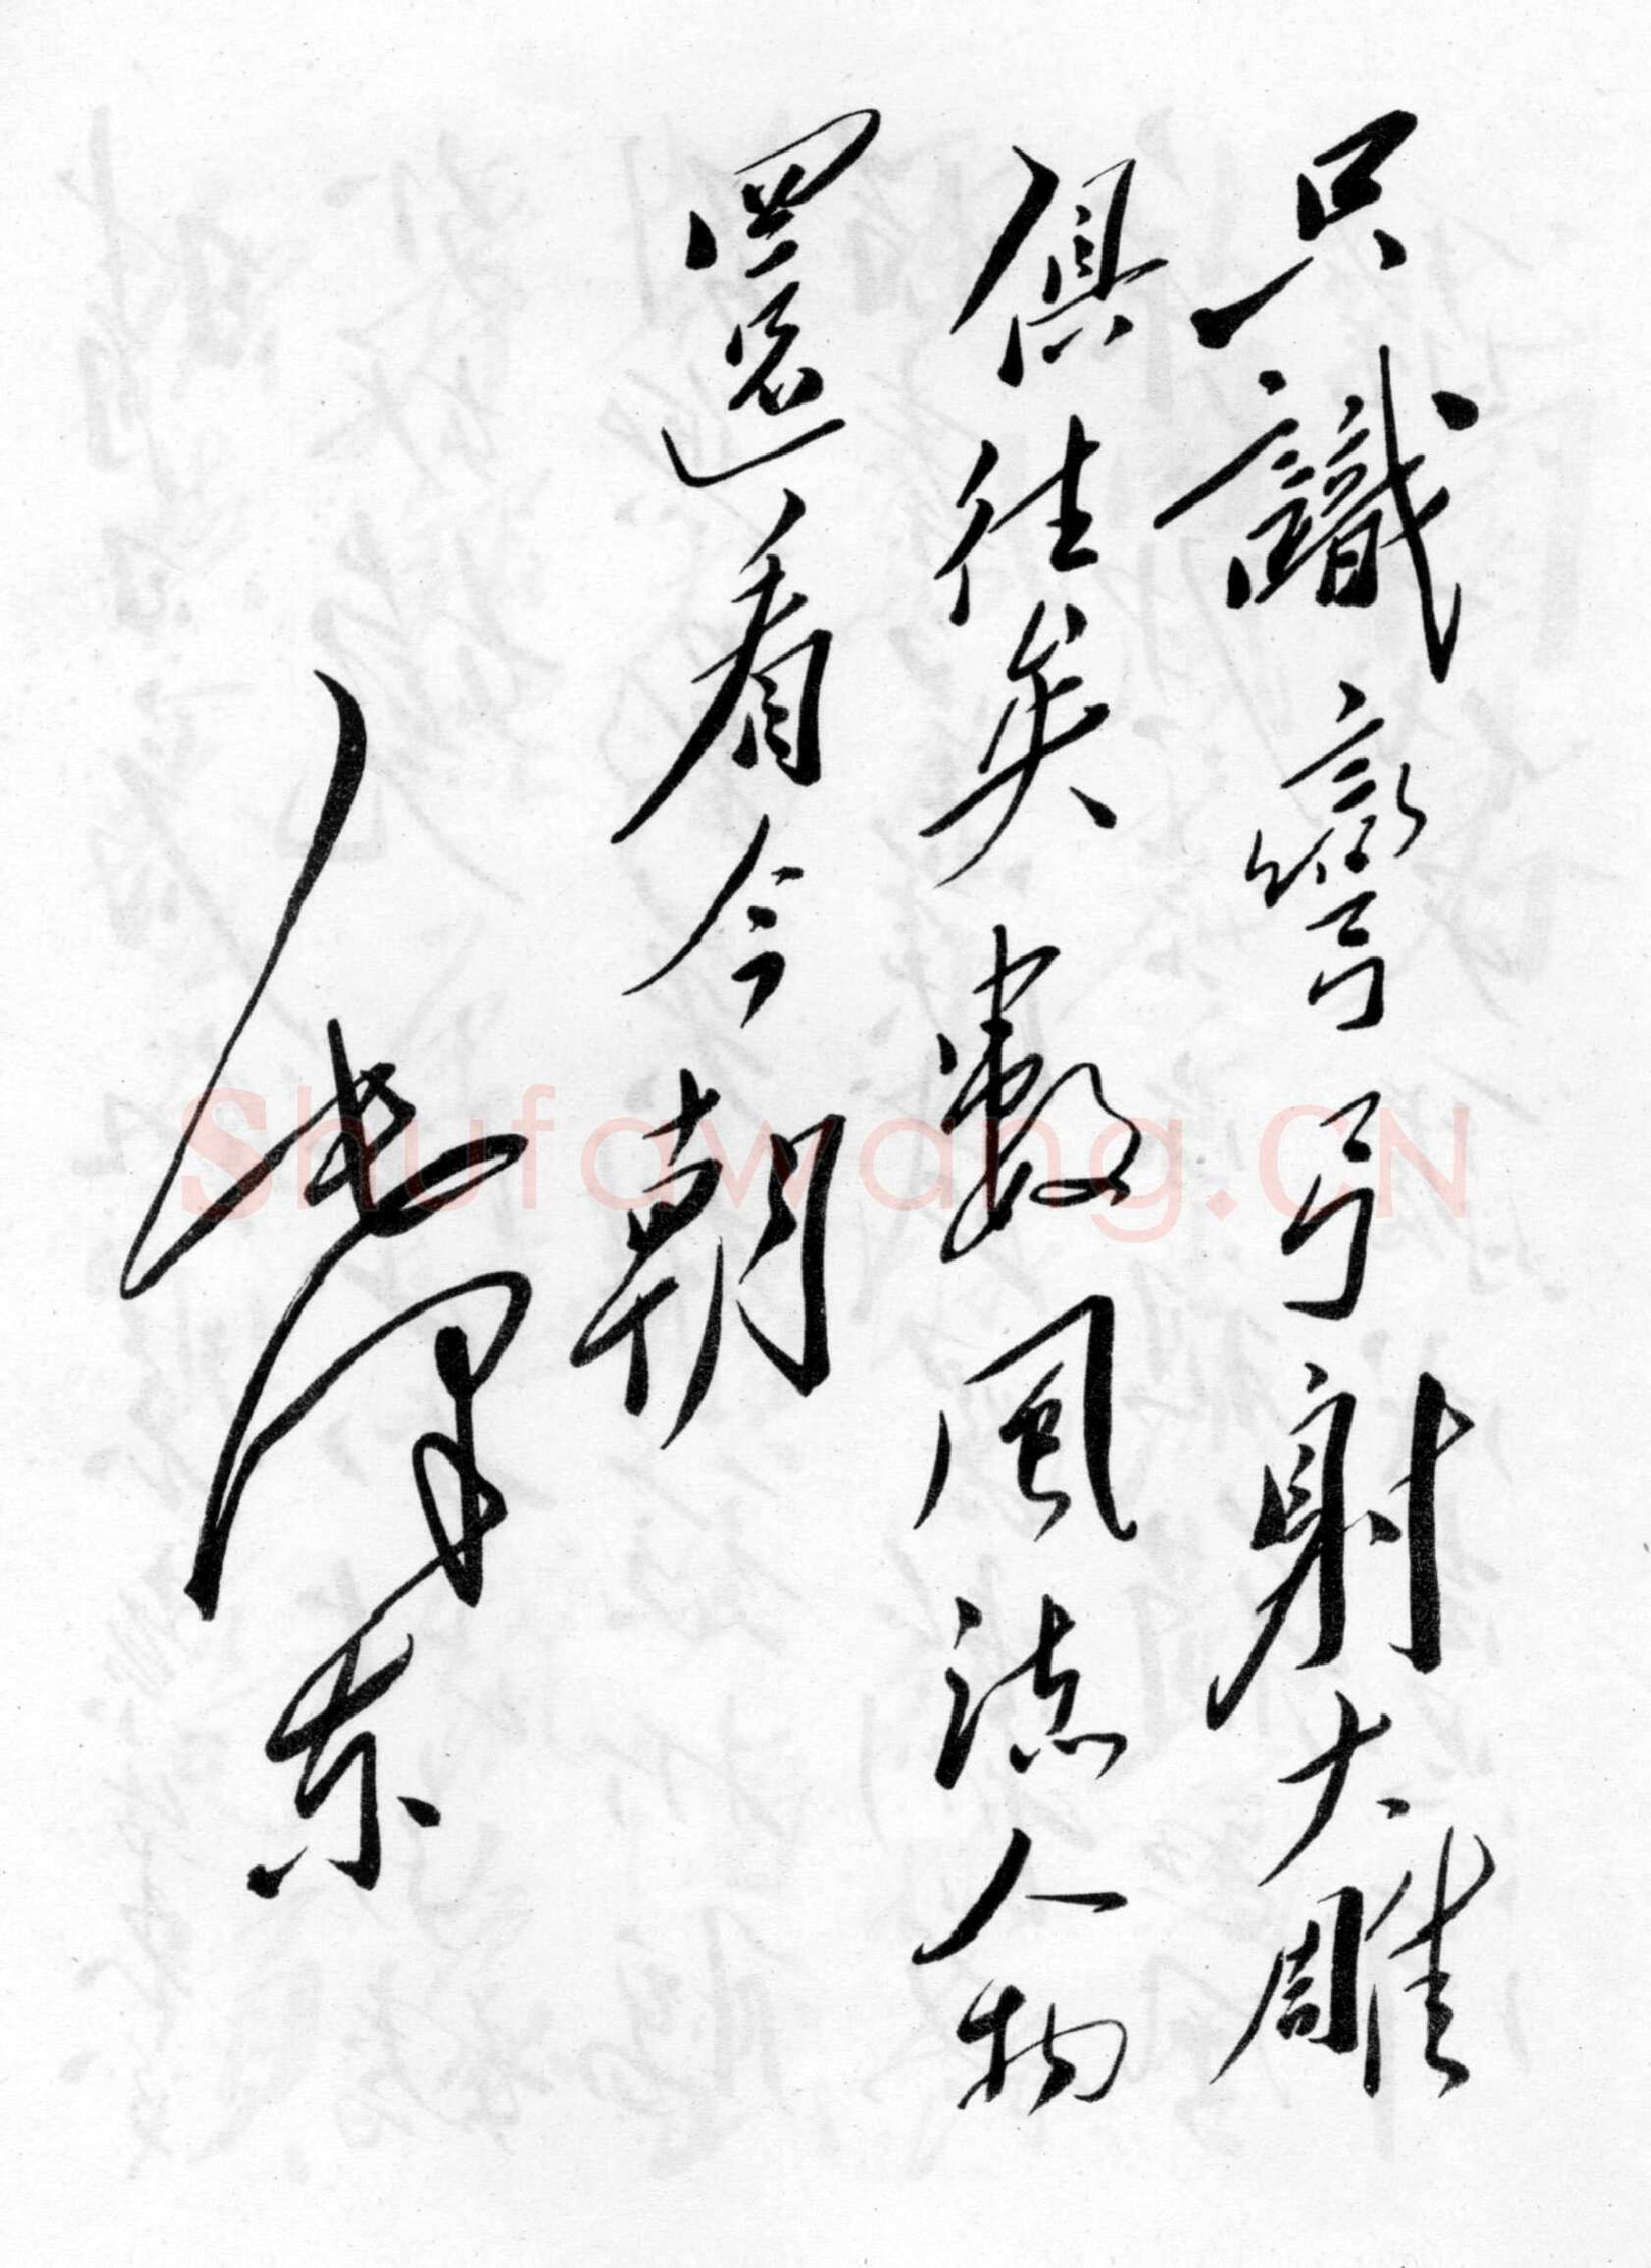 只識彎弓射大雕
俱往矣數風流人物
還看今朝
毛澤東
Shufawang.CN